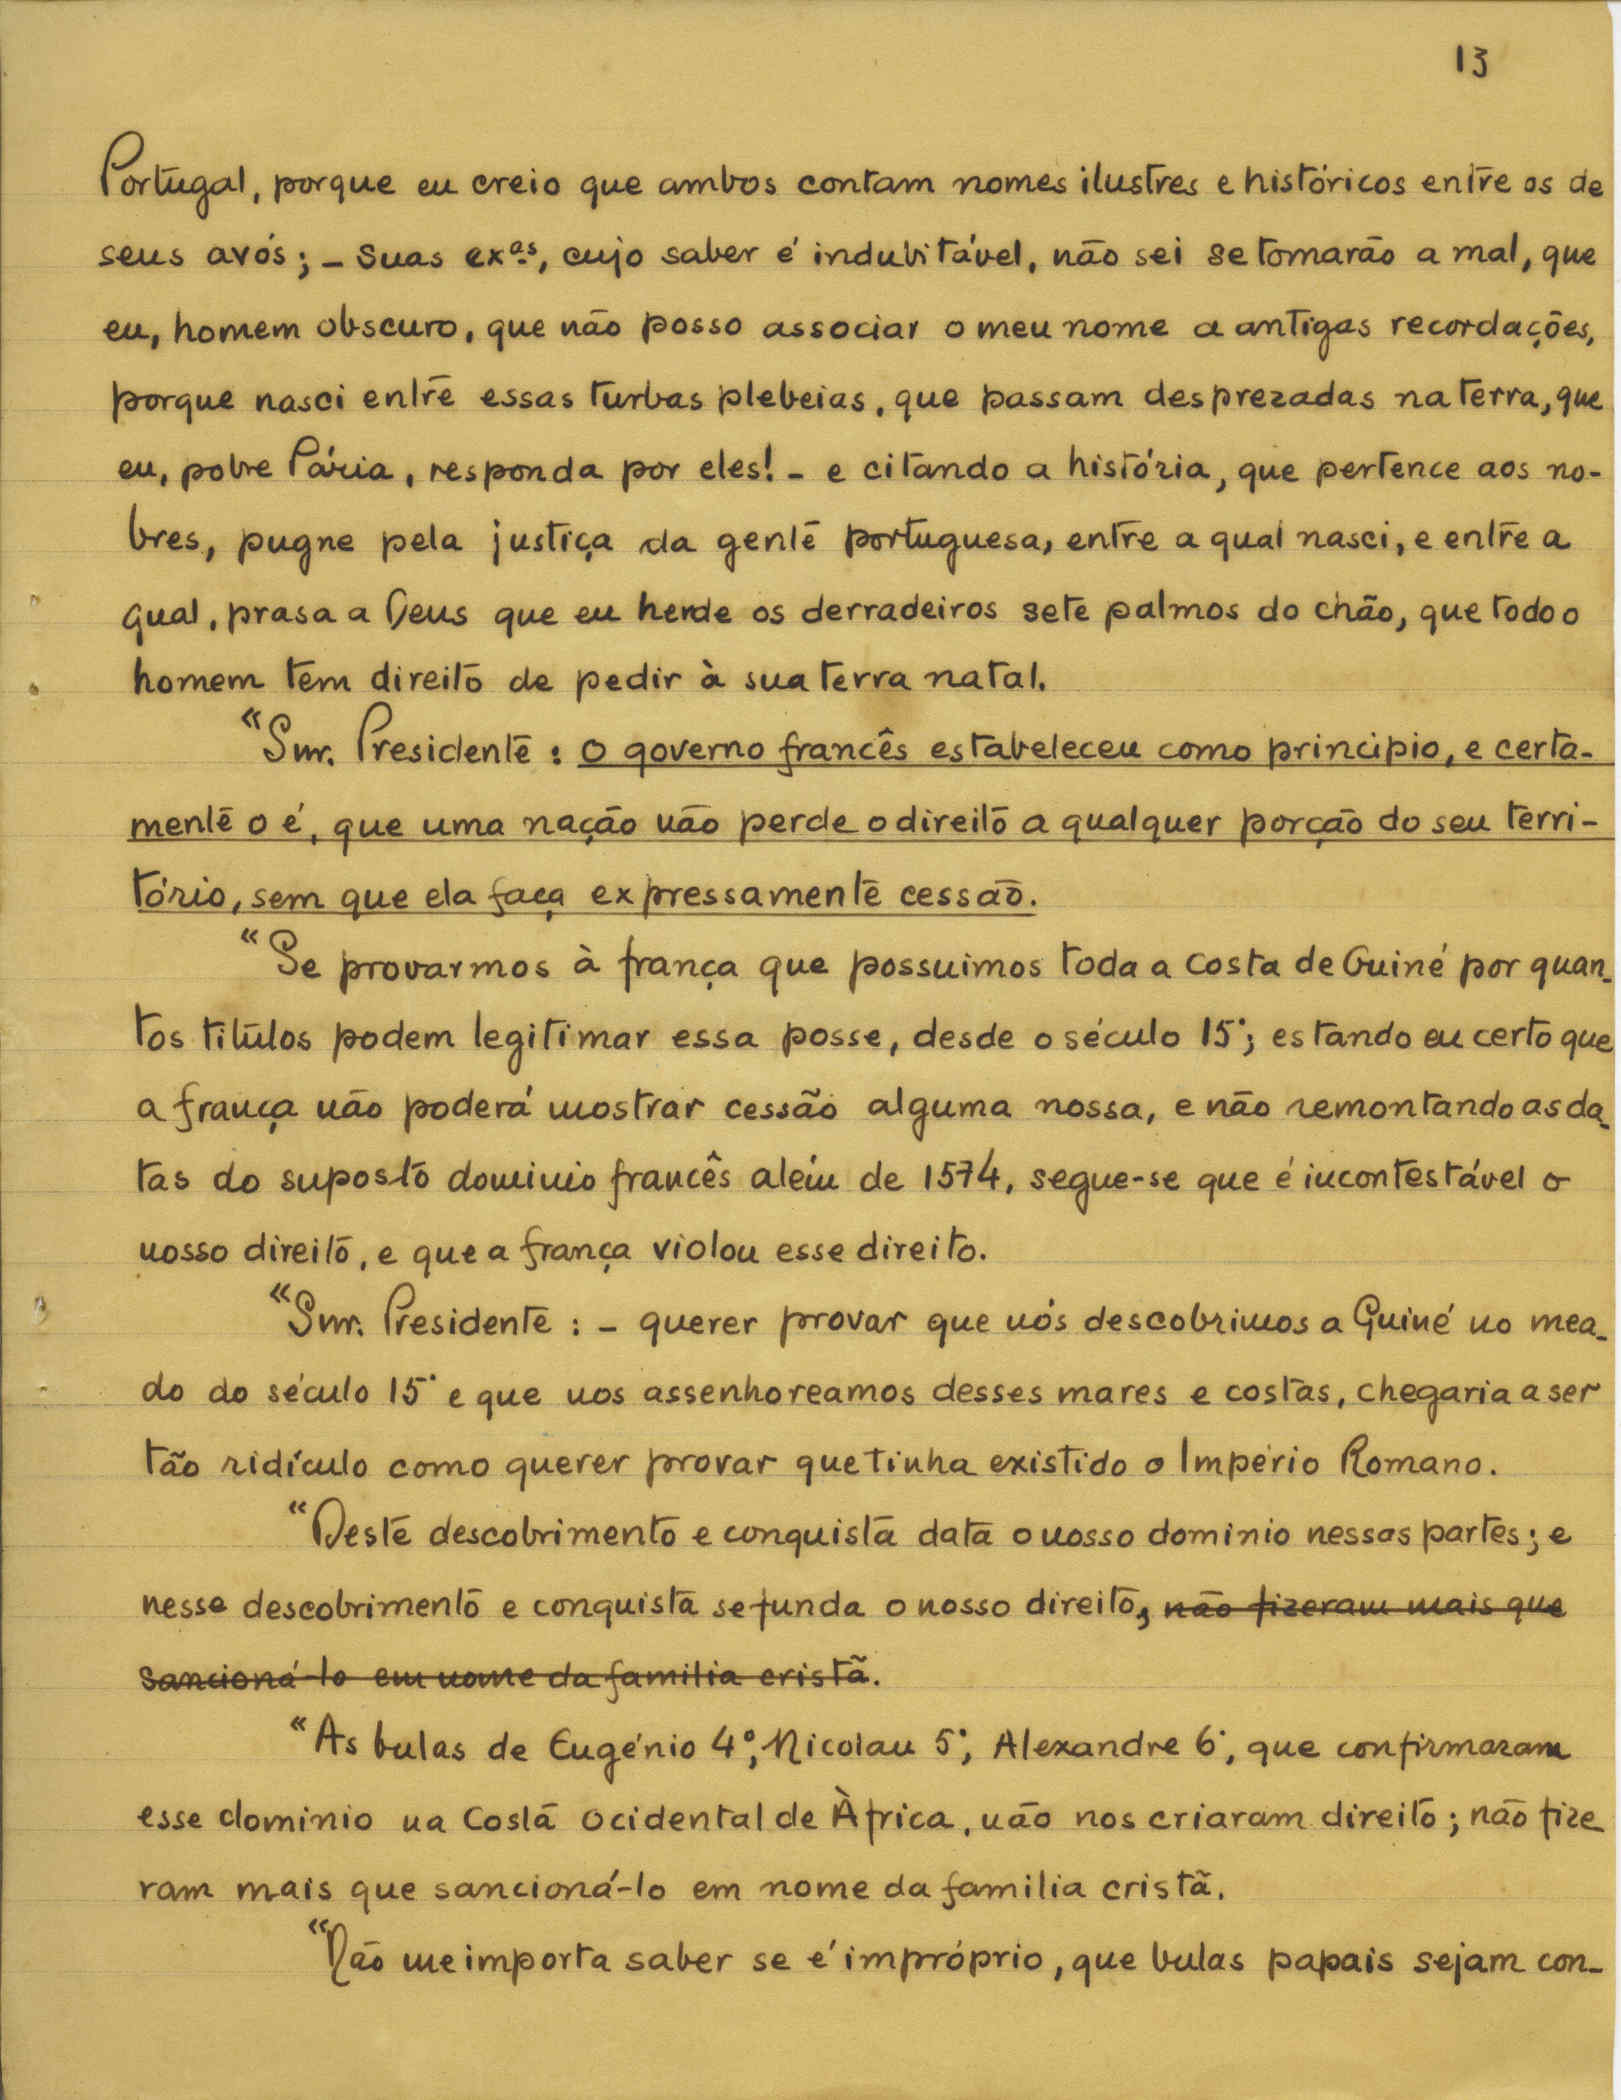 13
Portugal, porque eu creio que ambos contam nomes ilustres e históricos entre os de
seus avós; - Suas ex.as, cujo saber é indubitável, não sei se tomarão a mal, que
eu, homem obscuro, que não posso associar o meu nome a antigas recordações,
porque nasci entre essas turbas plebeias, que passam desprezadas na terra, que
eu, pobre Pária, responda por eles! - e citando a história, que pertence aos no-
bres, pugne pela justiça da gente portuguesa, entre a qual nasci, e entre a
qual, prasa a Deus que eu herde os derradeiros sete palmos do chão, que todo o
homem tem direito de pedir à sua terra natal.
"Snr. Presidente: O governo francês estabeleceu como principio, e certa-
mente o é, que uma nação não perde o direito a qualquer porção do seu terri-
tório, sem que ela faça expressamente cessão.
"Se provarmos à frança que possuimos toda a costa de Guiné por quan-
tos titúlos podem legitimar essa posse, desde o século 15°; estando eu certo que
a frança não poderá mostrar cessão alguma nossa, e não remontando as da-
tas do suposto dominio francês além de 1574, segue-se que é incontestável o
nosso direito, e que a frança violou esse direito.
"Snr. Presidente: - querer provar que nós descobrimos a Guiné no mea-
do do século 15° e que nos assenhoreamos desses mares e costas, chegaria a ser
tão ridículo como querer provar que tinha existido o Império Romano.
"Deste descobrimento e conquista data o nosso dominio nessas partes; e
nesse descobrimento e conquista se funda o nosso direito, não fizeram mais que
sancioná-lo em nome da familia cristã.
"As bulas de Eugénio 4°, Nicolau 5°, Alexandre 6°, que confirmaram
esse dominio na Costa Ocidental de Àfrica, não nos criaram direito; não fize
ram mais que sancioná-lo em nome da familia cristã.
"Não me importa saber se é impróprio, que bulas papais sejam con-